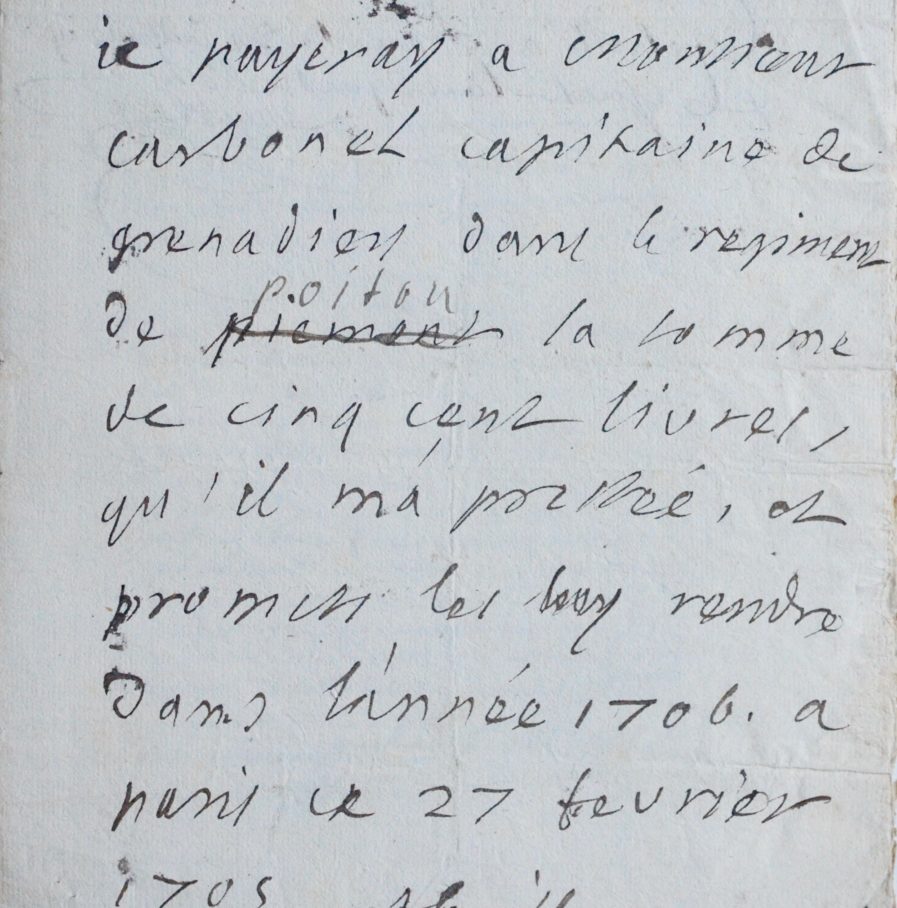 ie payeray a monsieur
carbonel capitaine de
grenadiers dans le regiment
poitou
de piemont la somme
de cinq cent livres,
qu'il má prestée, et
promets les luy rendre
dans l'année 1706. a
paris ce 27 fevrier
1705